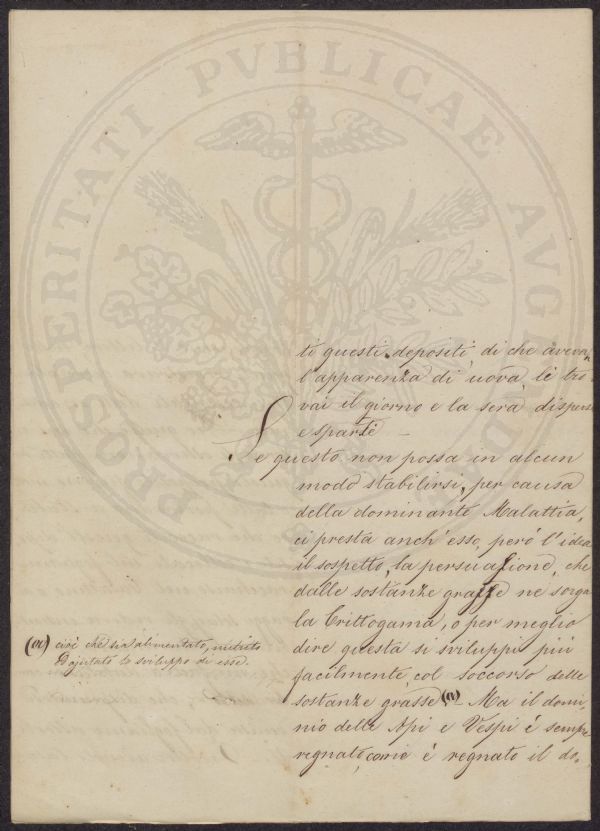 PROSPERITATI PVBLICAE AVGENDAE
ti questi depositi, di che aveva,
l'apparenza di uova, le tro
vai il giorno e la sera dispers
e sparte —
Se questo non possa in alcun
modo stabilirsi, per causa
della dominante Malattia,
ci presta anch'esso, però l'idea
il sospetto, la persuazione, che
dalle sostanze grasse ne sorga
la Crittogama, o per meglio
dire questa si sviluppi più
facilmente, col soccorso delle
sostanze grasse (a) Ma il domi,
nio delle Api e Vespi é sempre
regnato, come é regnato il do,
(a) cioè che sia alimentato, nutrito
ajutato lo sviluppo di esse.